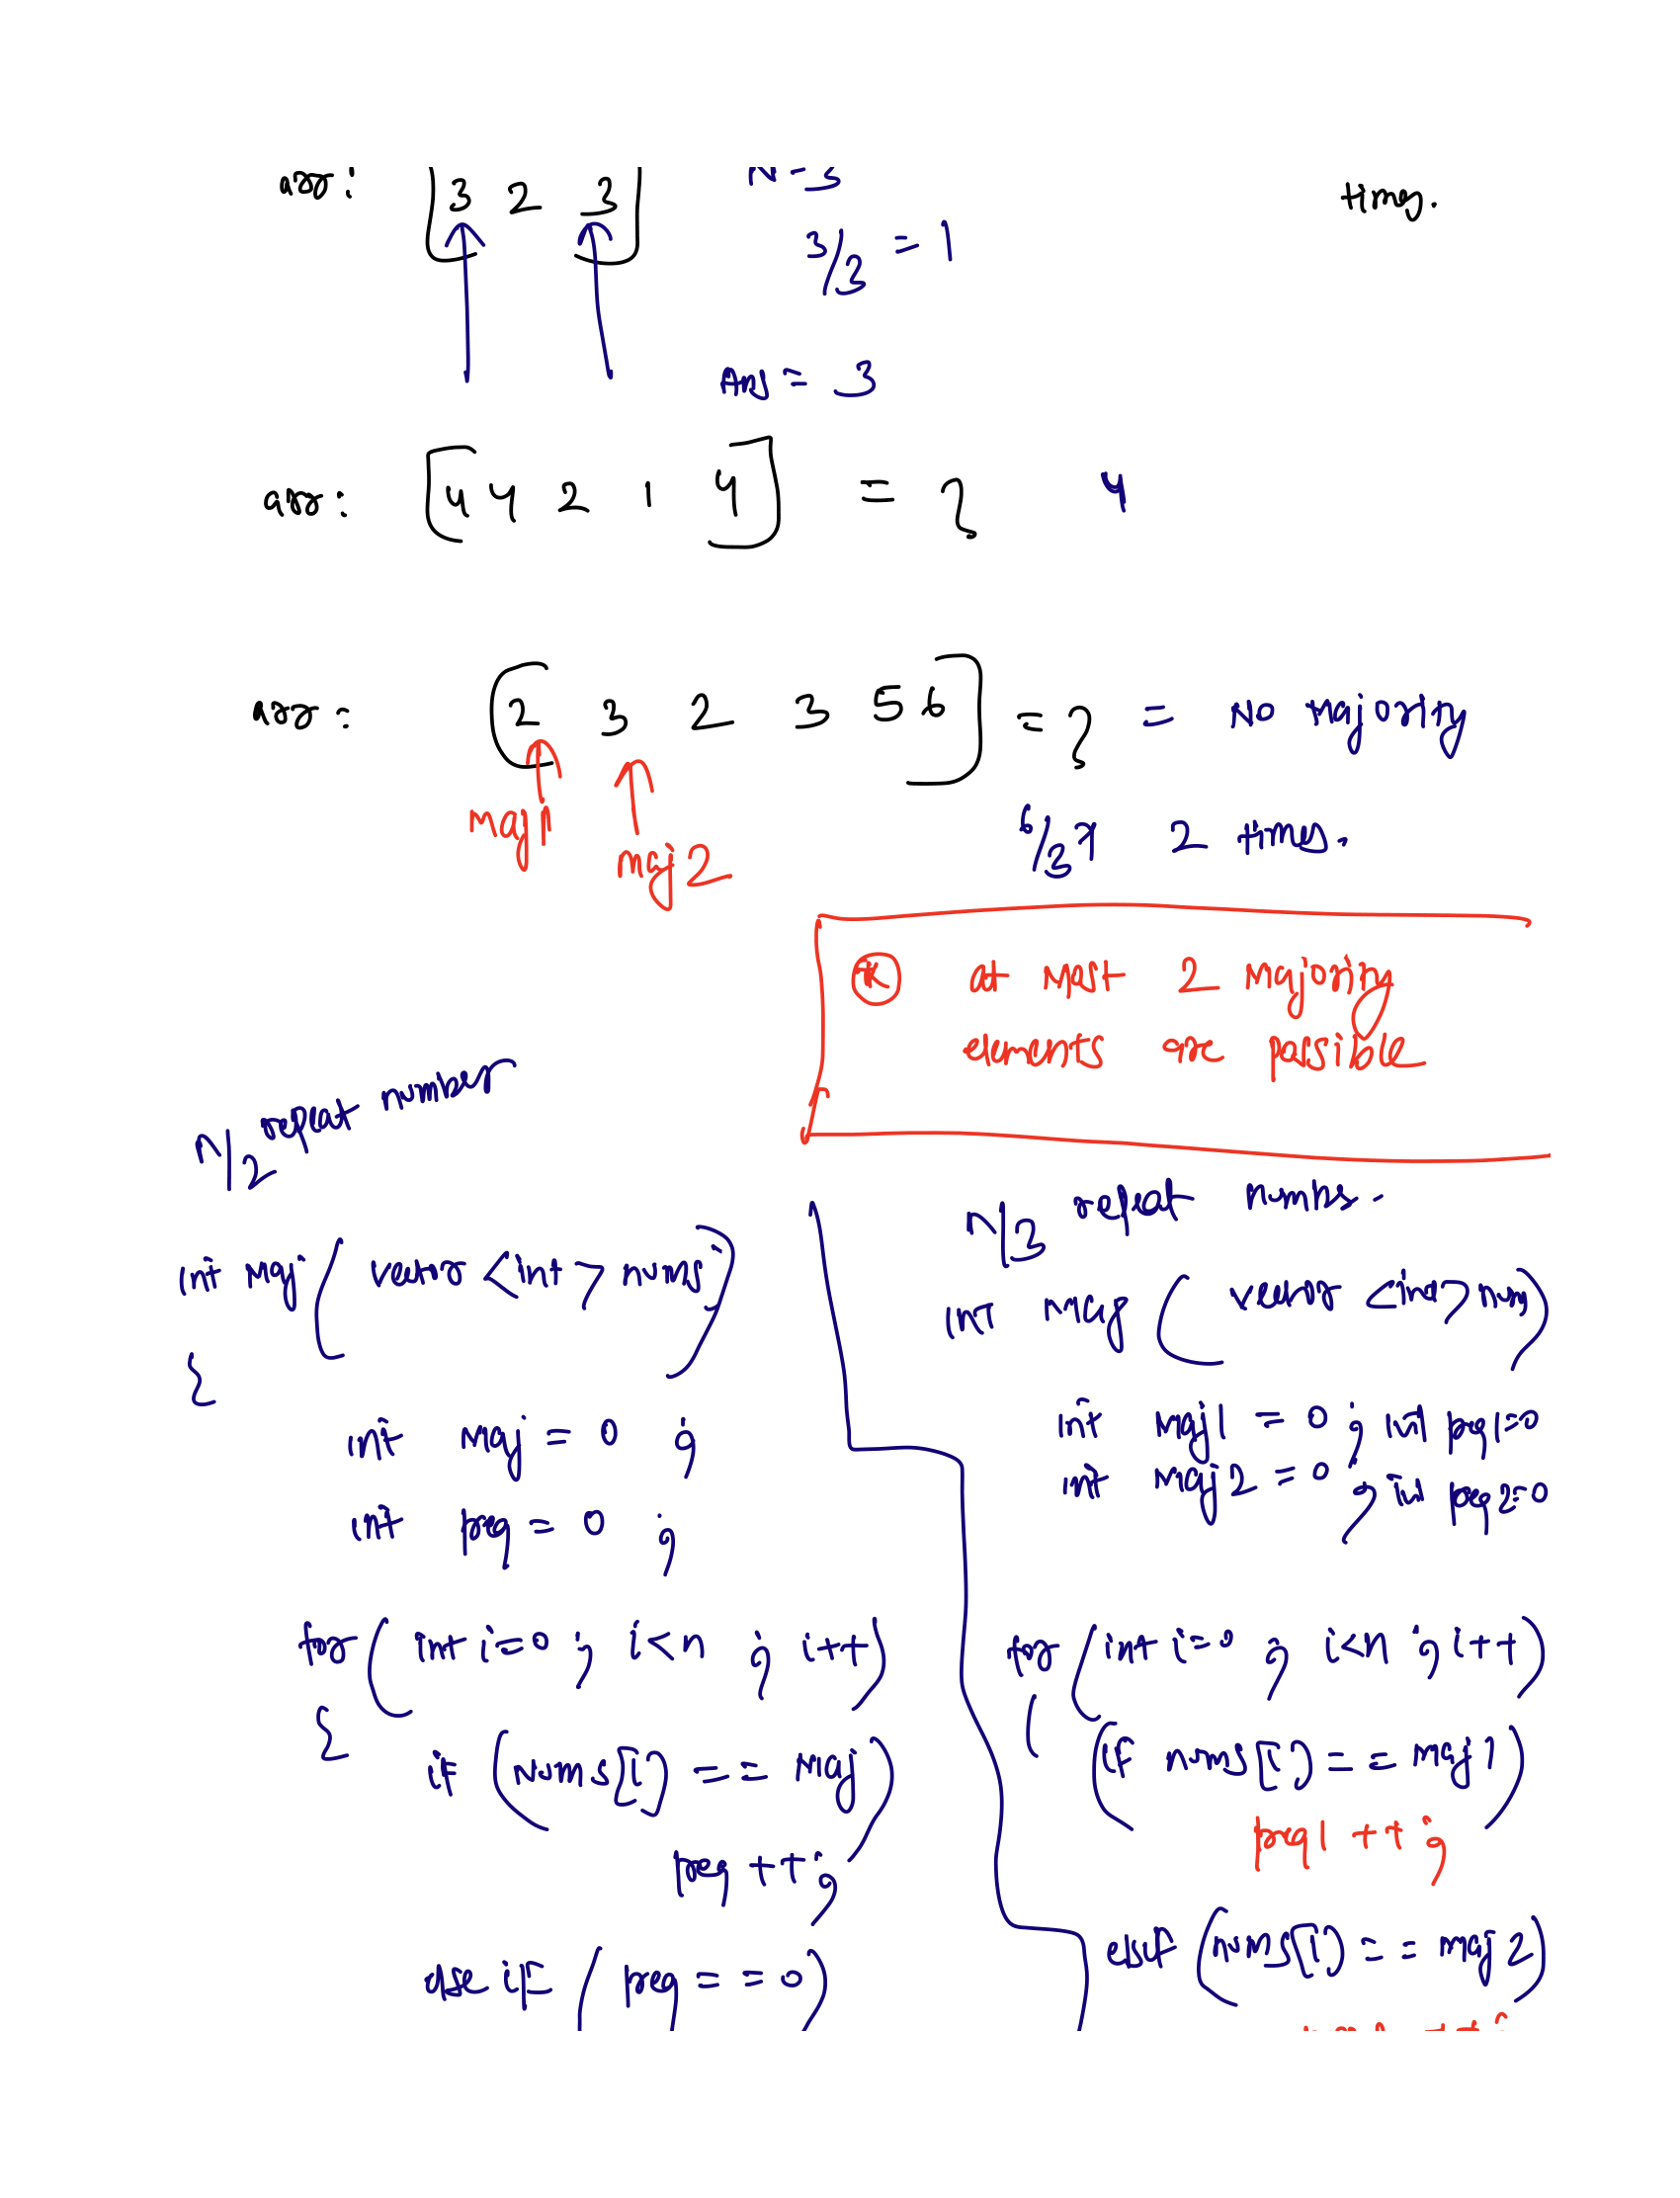 arr: [3 2 3] N = 3 times.
3/3 = 1
Ans = 3
arr: [4 4 2 1 4] = ? 4
arr: [2 3 2 3 5 6] = ? = No majority
maj1 maj2 6/3 > 2 times.
* at most 2 majority
elements are possible
n/2 repeat number
n/3 repeat number.
int maj ( vector <int> nums )
{
int maj = 0 ;
int freq = 0 ;
for ( int i=0 ; i<n ; i++)
{
if (nums[i] == maj)
freq ++;
else if (freq == 0)
int maj ( vector <int> num)
int maj1 = 0 ; int freq1=0
int maj2 = 0 ; int freq2=0
for (int i=0 ; i<n ; i++)
(
(if nums[i] == maj1)
freq1 ++ ;
elsif (nums[i] == maj2)